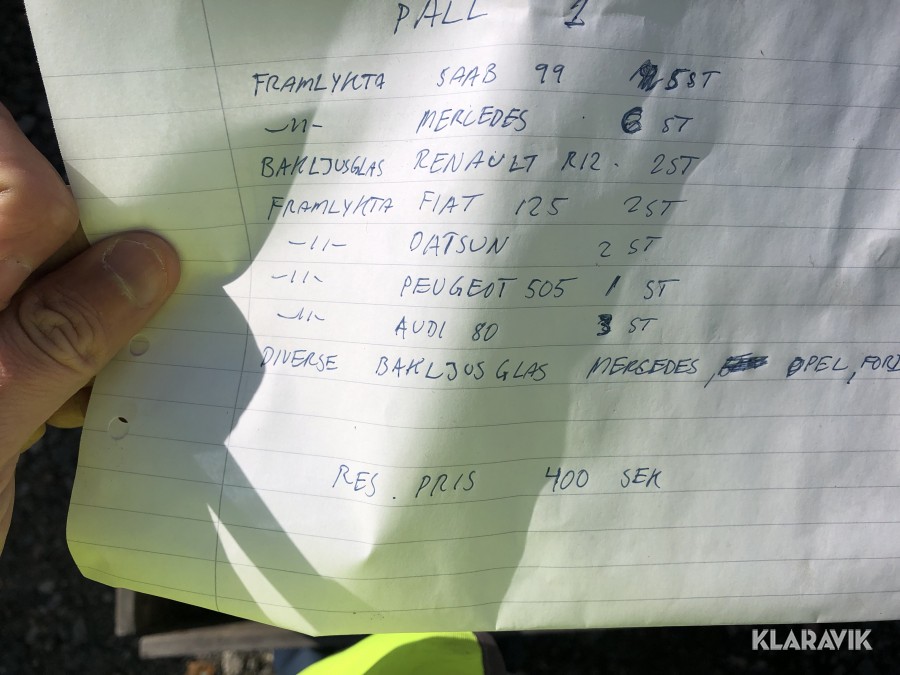 PALL 1
FRAMLYKTA SAAB 99 5ST
-11- MERCEDES 6 ST
BAKLJUSGLAS RENAULT R12. 2ST
FRAMLYKTA FIAT 125 2ST
-11- DATSUN 2 ST
-11- PEUGEOT 505 1 ST
-11- AUDI 80 3 ST
DIVERSE BAKLJUSGLAS MERCEDES, OPEL, FORD
RES. PRIS 400 SEK
KLARAVIK